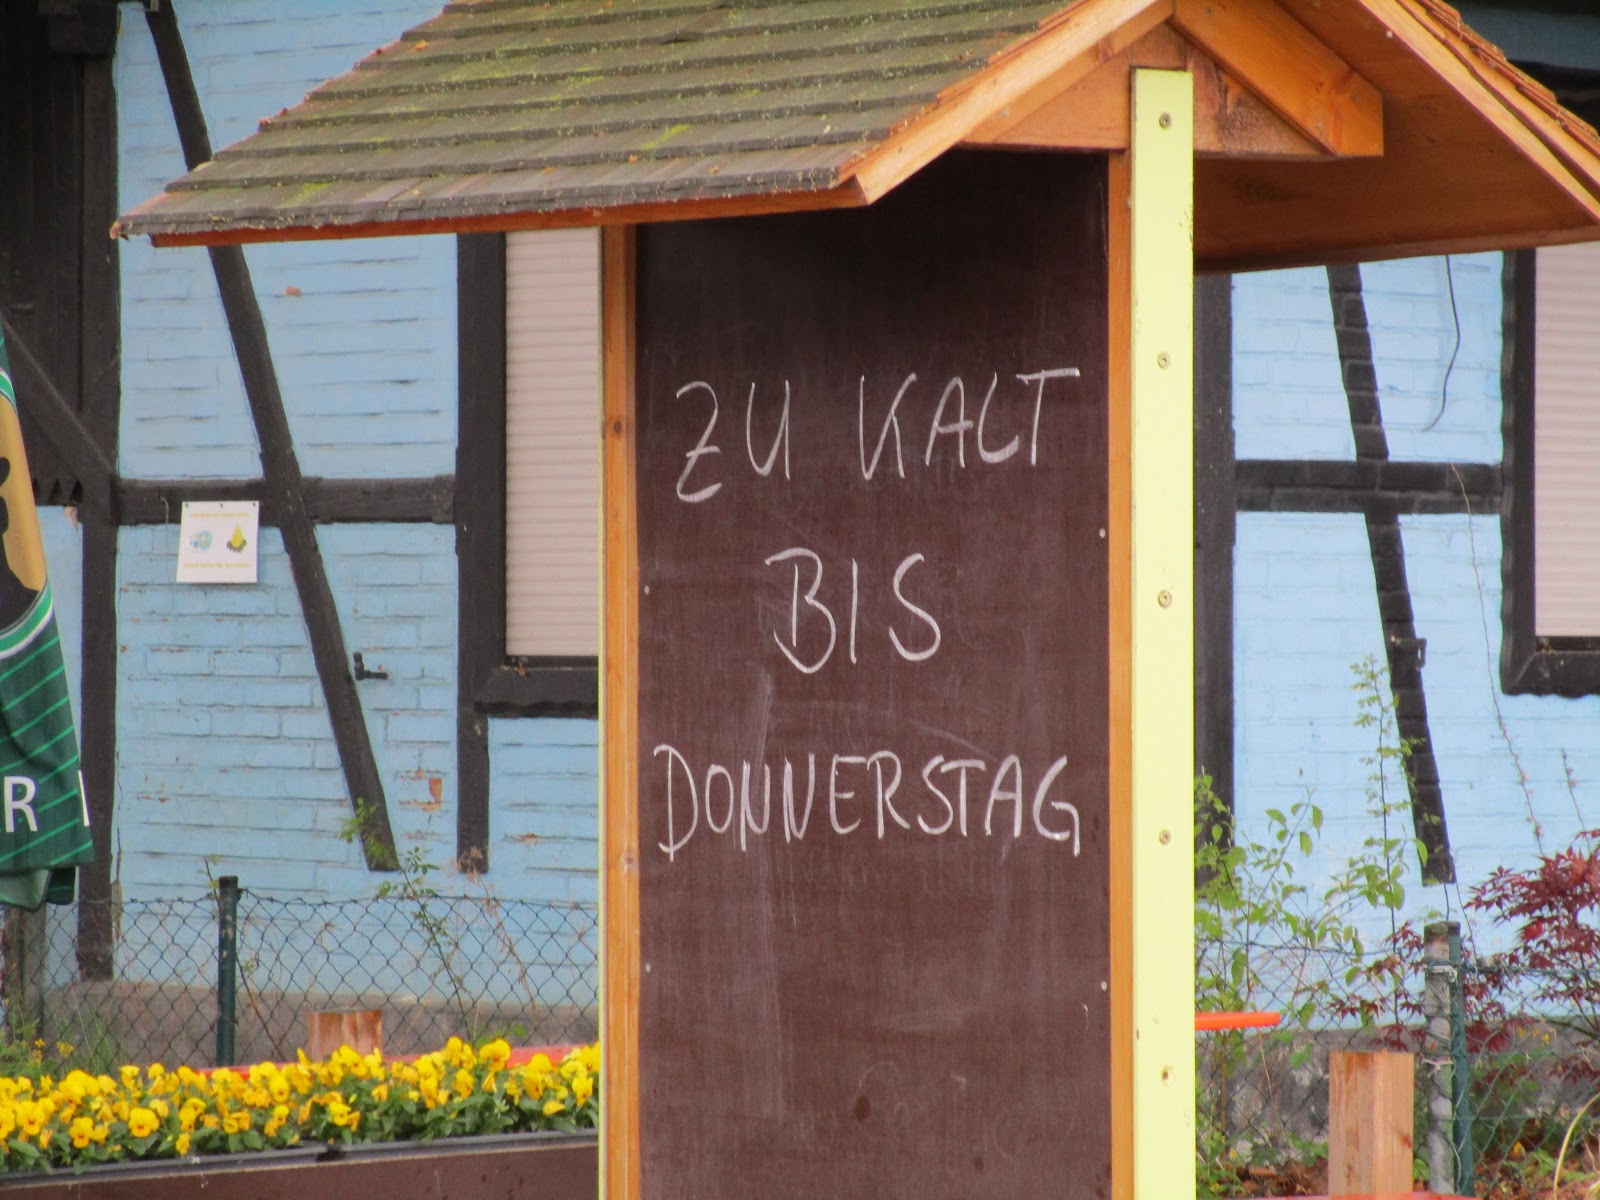 ZU KALT
BIS
DONNERSTAG
R